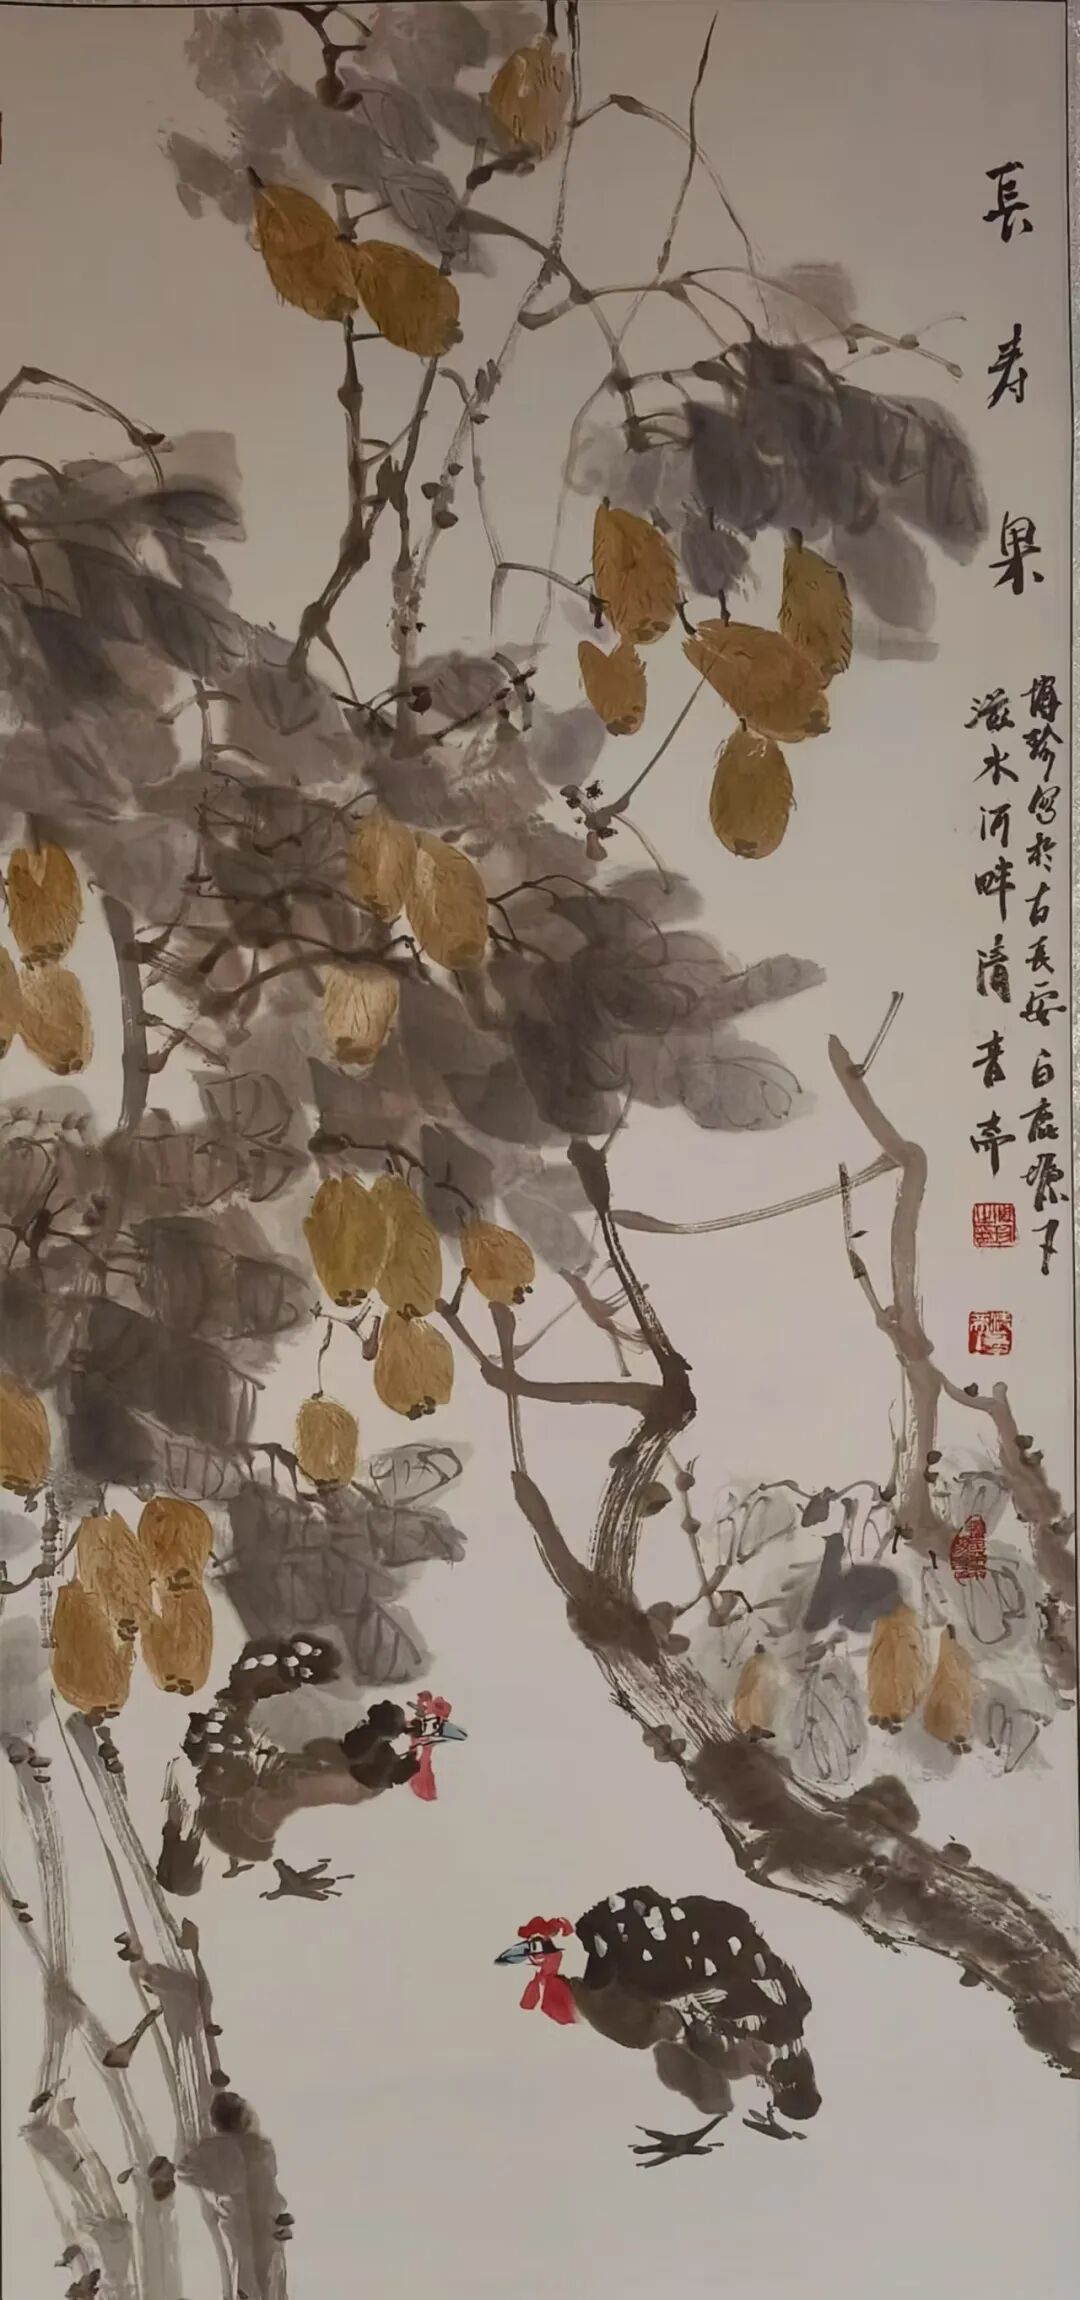 長寿果
博珍写於古長安白鹿塬下
滋水河畔清音斋